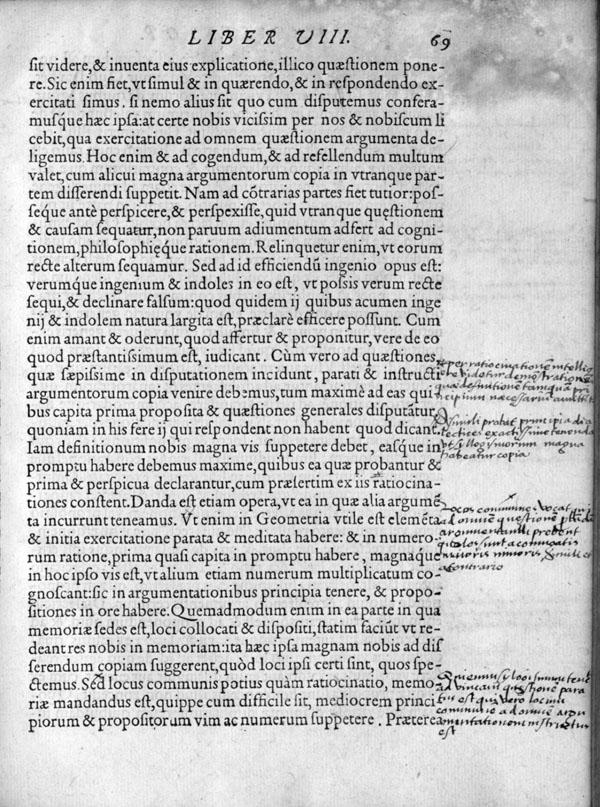 LIBER VIII. 69
sit videre,& inuenta eius explicatione, illico quæstionem pone-
re. Sic enim fiet, vt simul & in quærendo,& in respondendo ex-
ercitati simus. si nemo alius sit quo cum disputemus confera-
musque hæc ipsa: at certe nobis vicissim per nos & nobiscum li
cebit, qua exercitatione ad omnem quæstionem argumenta de-
ligemus. Hoc enim & ad cogendum,& ad refellendum multum
valet, cum alicui magna argumentorum copia in vtranque par-
tem disserendi suppetit. Nam ad cōtrarias partes fiet tutior: pos-
seque antè perspicere,& perspexisse, quid vtranque quęstionem
& causam sequatur, non paruum adiumentum adfert ad cogni-
tionem, philosophięque rationem. Relinquetur enim, vt eorum
recte alterum sequamur. Sed ad id efficiendū ingenio opus est:
verumque ingenium & indoles in eo est, vt possis verum recte
sequi,& declinare falsum: quod quidem ij quibus acumen inge
nij & indolem natura largita est, præclarè efficere possunt. Cum
enim amant & oderunt, quod affertur & proponitur, vere de eo
quod præstantissimum est, iudicant. Cùm vero ad quæstiones,
quæ sæpissime in disputationem incidunt, parati & instructi
argumentorum copia venire debemus, tum maximè ad eas qui
bus capita prima proposita & quæstiones generales disputātur,
quoniam in his fere ij qui respondent non habent quod dicant.
Iam definitionum nobis magna vis suppetere debet, easque in
promptu habere debemus maxime, quibus ea quæ probantur &
prima & perspicua declarantur, cum præsertim ex iis ratiocina-
tiones constent. Danda est etiam opera, vt ea in quæ alia argumē
ta incurrunt teneamus. Vt enim in Geometria vtile est elemēta
& initia exercitatione parata & meditata habere: & in numero-
rum ratione, prima quasi capita in promptu habere, magnaque
in hoc ipso vis est, vt alium etiam numerum multiplicatum co-
gnoscant: sic in argumentationibus principia tenere, & propo-
sitiones in ore habere. Quemadmodum enim in ea parte in qua
memoriæ sedes est, loci collocati & dispositi, statim faciūt vt re-
deant res nobis in memoriam: ita hæc ipsa magnam nobis ad dis
serendum copiam suggerent, quòd loci ipsi certi sint, quos spe-
ctemus. Sed locus communis potius quàm ratiocinatio, memo-
riæ mandandus est, quippe cum difficile sit, mediocrem princi
piorum & propositorum vim ac numerum suppetere. Præterea
principia dia
magna
habeatur copia
a contrario
est